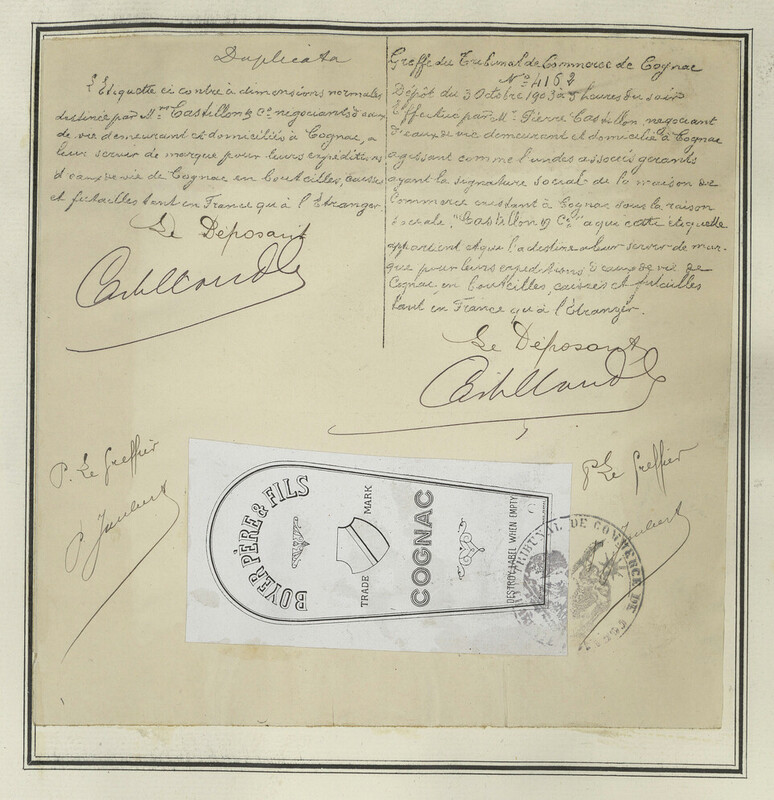 Duplicata
L'Etiquette ci contre à dimensions normales
destinée par M. Castillon & Co négociants d'eaux
de vie demeurant et domiciliés à Cognac, a
leur servir de marque pour leurs expéditions
d'eaux de vie de Cognac en bouteilles, caisses
et futailles tant en France qu'à l'Etranger.
Le Déposant
Castillon & Co
Greffe du Tribunal de Commerce de Cognac
No 4162
Dépôt du 3 Octobre 1903 à 5 heures du soir
Effectué par M. Pierre Castillon, négociant
d'eaux de vie demeurant et domicilié à Cognac
agissant comme l'un des associés gérants
ayant la signature social de la maison de
Commerce existant à Cognac sous la raison
sociale, "Castillon & Co" à qui cette étiquette
appartient et qui l'a destine a leur servir de mar-
que pour leurs expéditions d'eaux de vie de
Cognac en bouteilles, caisses et futailles
tant en France qu'à l'Etranger.
Le Déposant
Castillon & Co
P. Le Greffier
P. Le Greffier
BOYER PÈRE & FILS
TRADE MARK
COGNAC
DESTROY LABEL WHEN EMPTY
TRIBUNAL DE COMMERCE DE